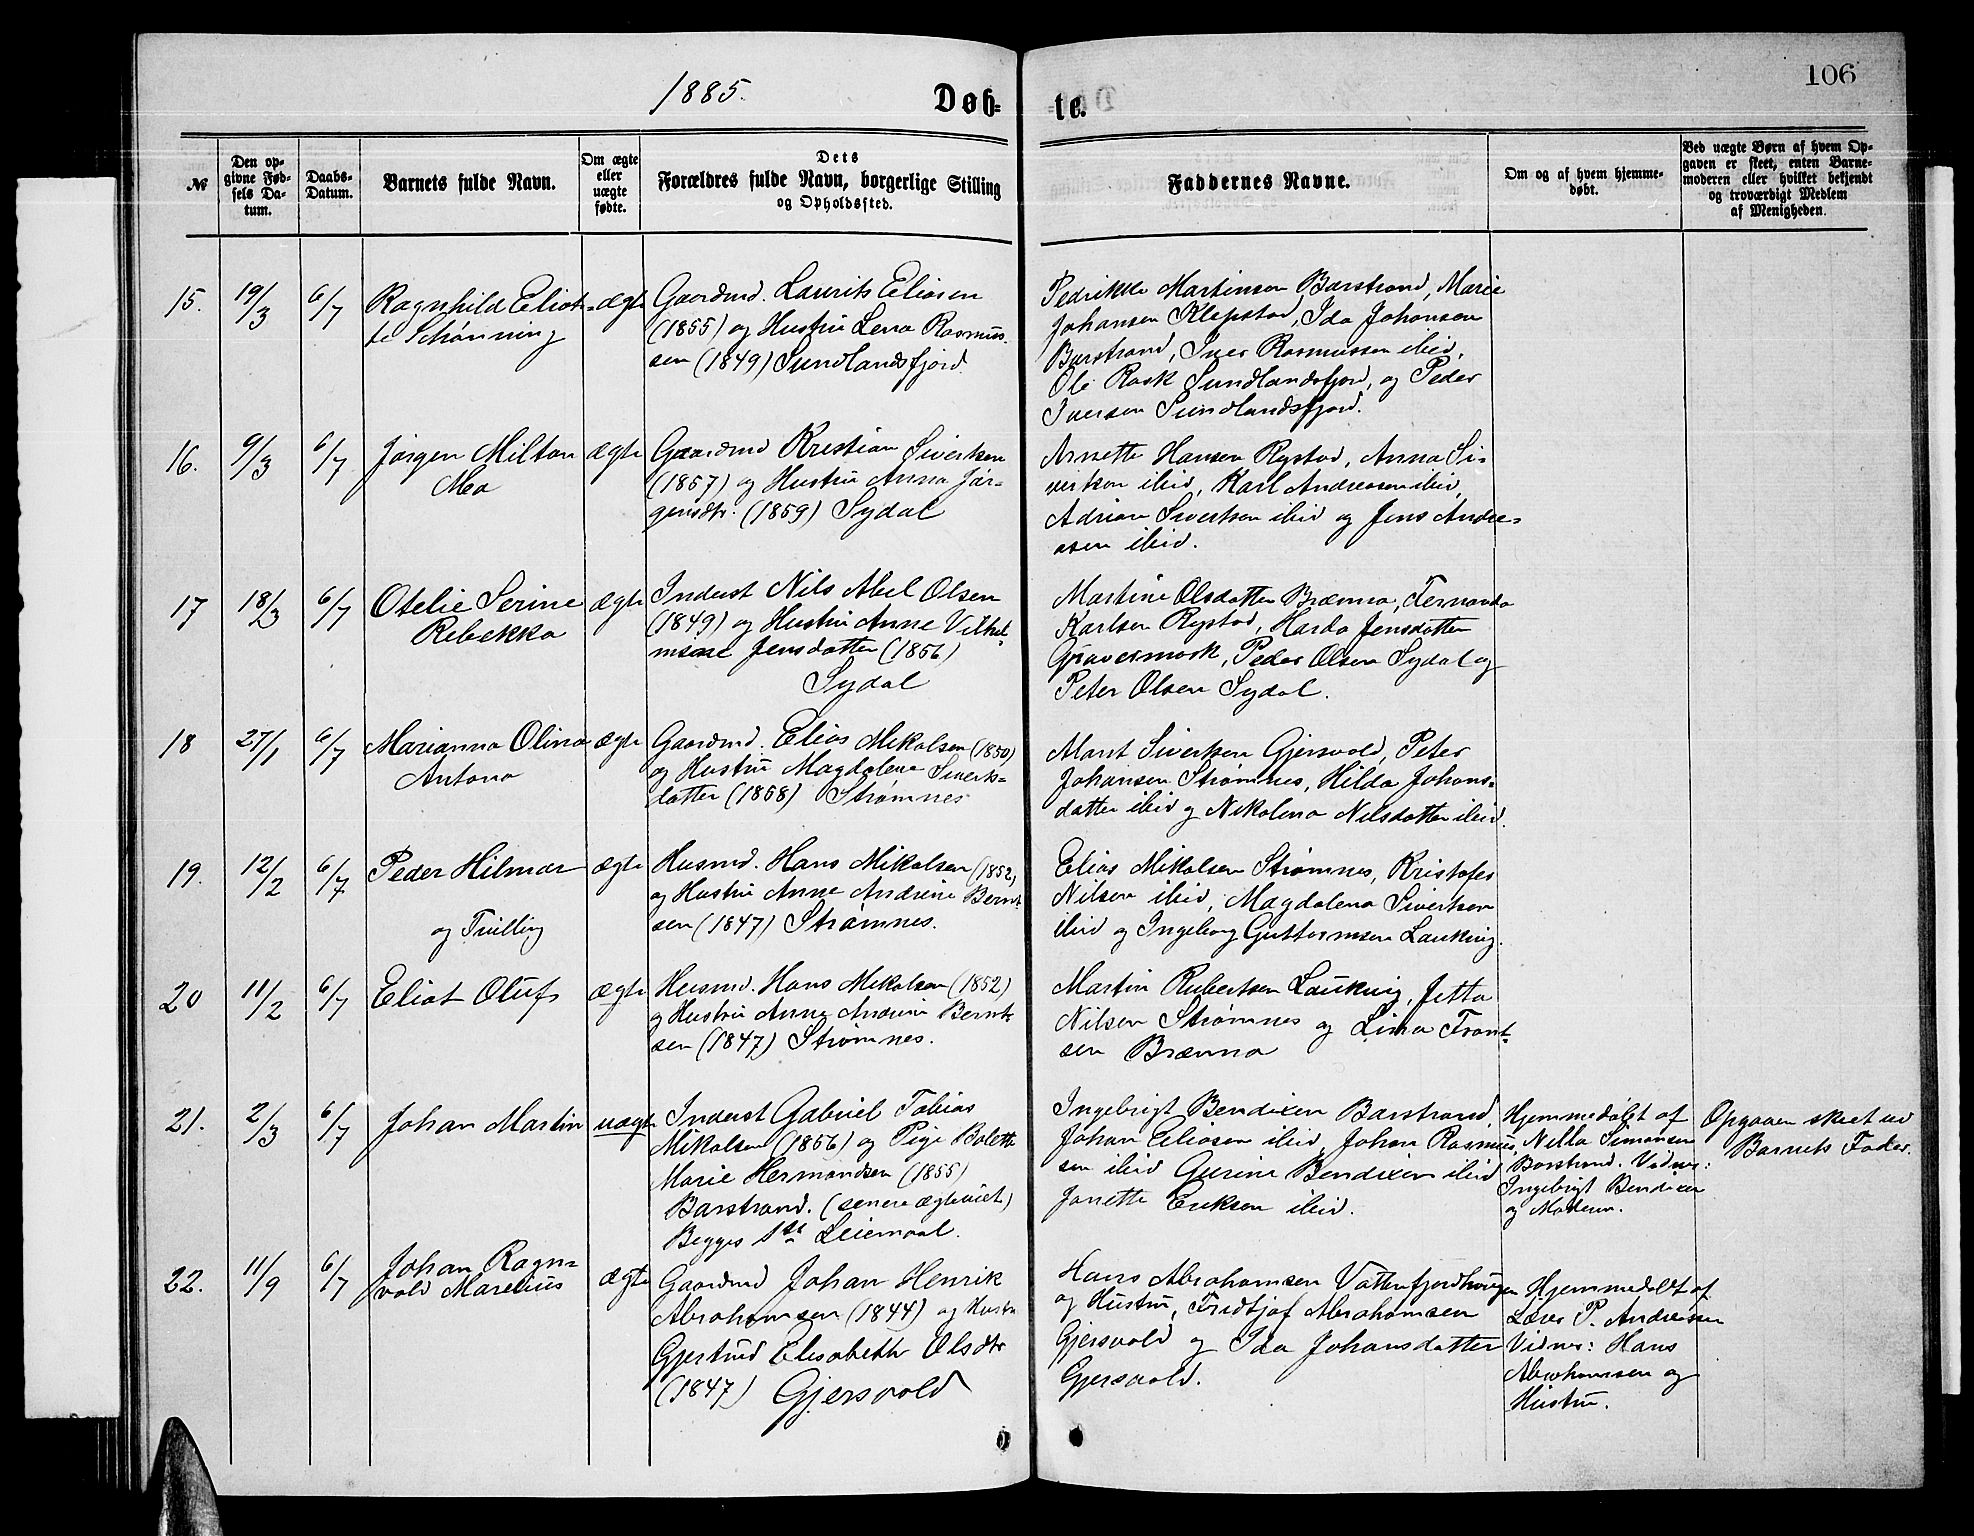 106
1885.
Døb-
te.
№
Den op-
givne Fød-
sels Da-
tum.
Daabs-
Datum.
Barnets fulde Navn.
Om ægte
eller
uægte
fødte.
Dets
Forældres fulde Navn, borgerlige Stilling
og Opholdssted.
Faddernes Navne.
Om og af hvem hjemme-
døbt.
Ved uægte Børn af hvem Op-
gaven er skeet, enten Barne-
moderen eller hvilket bekjendt
og troværdigt Medlem
af Menigheden.
15.
19/3
6/7
Ragnhild Eliot-
te Schønning
ægte
Gaardmd. Laurits Eliasen
(1855) og Hustru Lena Rasmus-
sen (1849) Sundlandsfjord.
Pedrikke Martinsen Barstrand, Marie
Johansen Klepstad, Ida Johansen
Barstrand, Iver Rasmussen ibid,
Ole Rask Sundlandsfjord, og Peder
Iversen Sundlandsfjord.
16.
9/3
6/7
Jørgen Milton
Mea
ægte
Gaardmd Kristian Sivertsen
(1857) og Hustru Anna Jør-
gensdtr. (1859) Sydal
Arnette Hansen Rystad, Anna Si-
vertsen ibid, Karl Andreasen ibid,
Adrian Sivertsen ibid og Jens Andre-
asen ibid.
17
18/3
6/7
Otelie Serine
Rebekka
ægte
Inderst Nils Abel Olsen
(1849) og Hustru Anne Vilhel-
msene Jensdatter (1856)
Sydal
Martine Olsdatter Brænna, Fernanda
Karlsen Rystad, Harda Jensdatter
Gravermark, Peder Olsen Sydal og
Peter Olsen Sydal.
18
27/1
6/7
Marianna Olina
Antona
ægte
Gaardmd. Elias Mikalsen (1850)
og Hustru Magdalena Siverts-
datter (1858) Strømnes
Marit Sivertsen Gjersvold, Peter
Johansen Strømnes, Hilda Johans-
datter ibid og Nikolena Nilsdatter ibid.
19.
12/2
6/7
Peder Hilmar
og Tvilling
ægte
Husmd. Hans Mikalsen (1852)
og Hustru Anne Andrine Bernt-
sen (1847) Strømnes.
Elias Mikalsen Strømnes, Kristofer
Nilsen ibid, Magdalena Sivertsen
ibid og Ingeborg Guttormsen Laukvig.
20
11/2
6/7
Eliot Oluf
ægte
Husmd. Hans Mikalsen (1852)
og Hustru Anne Andrine Bernt-
sen (1847) Strømnes.
Martin Rubertsen Laukvig, Jetta
Nilsen Strømnes og Lina Frant-
sen Brænna
21.
2/3
6/7
Johan Martin
uægte
Inderst Gabriel Tobias
Mikalsen (1856) og Pige Bolette
Marie Hermandsen (1855)
Barstrand. (senere ægteviet)
Begges 1ste Leiermaal.
Ingebrigt Bendixen Barstrand,
Johan Eliasen ibid, Johan Rasmus-
sen ibid Gurine Bendixen ibid
Janette Eriksen ibid.
Hjemmedøbt af
Nella Simonsen
Barstrand. Vidner:
Ingebrigt Bendixen
og Moderen.
Opgaven skeet ved
Barnets Fader.
22.
11/9
6/7
Johan Ragn-
vald Marelius
ægte
Gaardmd Johan Henrik
Abrahamsen (1844) og Hustru
Gjertrud Elisabeth Olsdtr
(1847) Gjersvold
Hans Abrahamsen Vatterfjordhougen
og Hustru, Fridtjof Abrahamsen
Gjersvold og Ida Johansdatter
Gjersvold.
Hjemmedøbt af
Lærer P. Andreassen
Vidner: Hans
Abrahamsen og
Hustru.